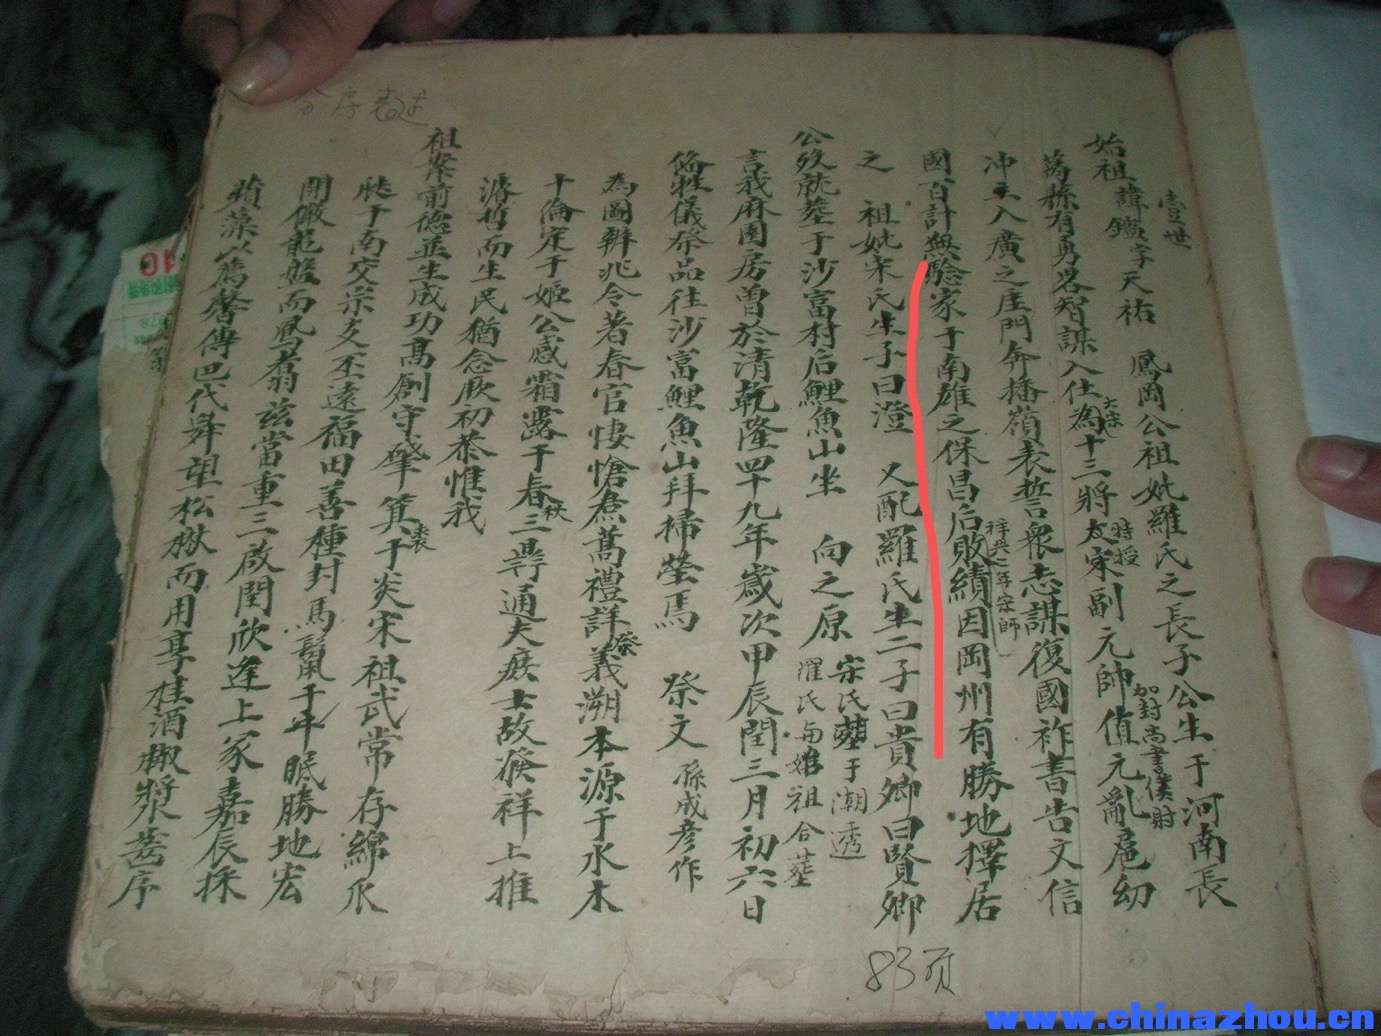 壹世
始祖諱鑑字天祐 鳳岡公祖妣羅氏之長子公生于河南長
萬縣有勇畧智謀入仕大宋為十三將特授大宋副元帥加封尚書僕射值元亂扈幼
冲主入廣之崖門奔播嶺表誓衆志謀復國祚書告文信
國百計無驗家于南雄之保昌后敗績祥興二年宋師因岡州有勝地擇居
之 祖妣宋氏生子曰澄 又配羅氏生二子曰貴卿曰賢卿
公歿就塟于沙富村后鯉魚山坐 向之原 宋氏塟于潮透
羅氏与始祖合塟
言我麻園房曽於清乾隆四十九年歲次甲辰閏三月初六日
俻牲儀祭品往沙富鯉魚山拜掃塋焉 祭文 孫成彦作
為圖辦兆令著春官悽愴焄蒿禮詳祭義溯本源于水木
十倫定于姬公感霜露于春秋三鼎通大夫庶士故發祥上推
濬哲而生民猶念厥初恭惟我
祖案前德並生成功髙創守肇箕裘于炎宋祖武常存綿瓜
瓞于南交宗支丕遠福田善種封馬鬣千年眠勝地宏
開儼龍盤而鳳翥兹當重三啟閏欣逢上冢嘉辰採
蘋藻以薦馨傳巴代舜望松楸而用享桂酒椒漿茜序
分序表述
83页
www.chinazhou.cn